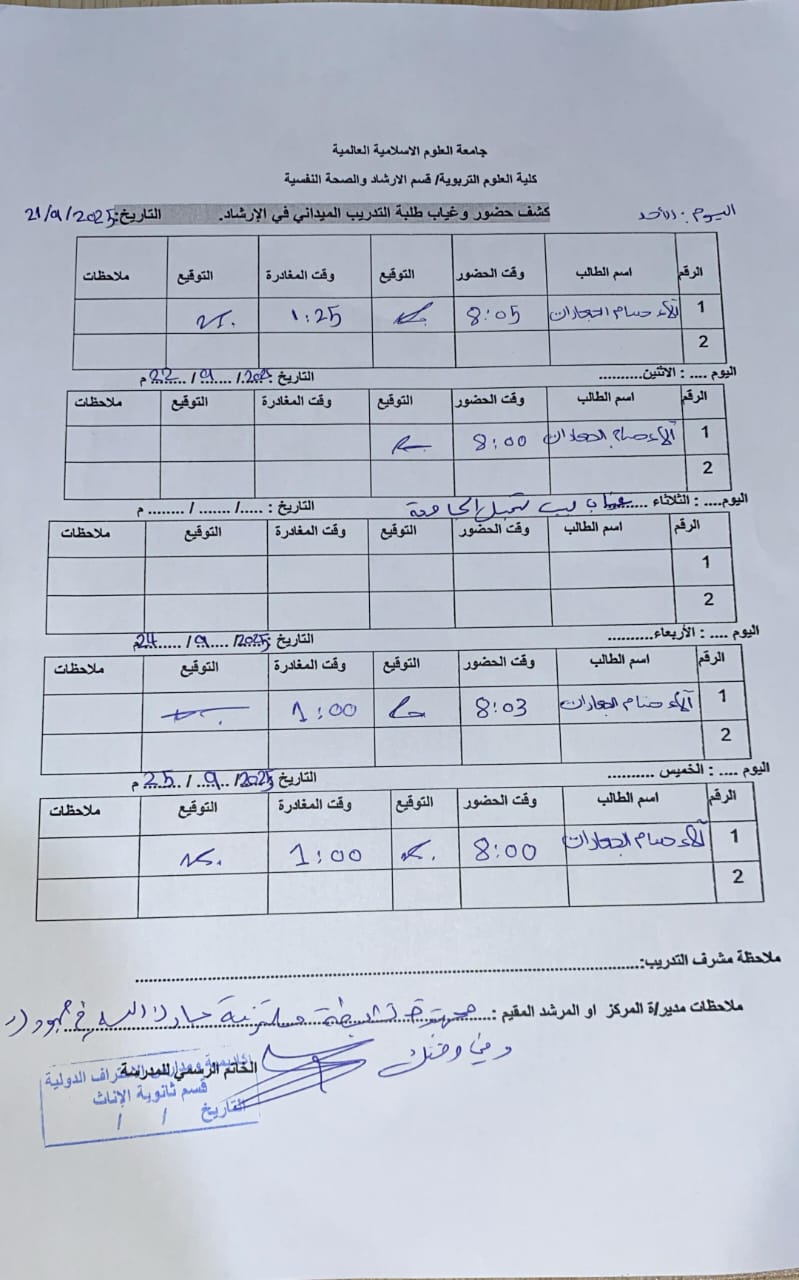 جامعة العلوم الاسلامية العالمية
كلية العلوم التربوية/ قسم الارشاد والصحة النفسية
اليوم: الأحد كشف حضور وغياب طلبة التدريب الميداني في الإرشاد. التاريخ: 21/9/2025
الرقم اسم الطالب وقت الحضور التوقيع وقت المغادرة التوقيع ملاحظات
1 آلاء حسام 8:05 1:25
2
اليوم .... : الاثنين.......... التاريخ : 2025/ 9 / 22 م
الرقم اسم الطالب وقت الحضور التوقيع وقت المغادرة التوقيع ملاحظات
1 آلاء حسام 8:00
2
اليوم.... : الثلاثاء ...... غياب لتسجيل الجامعة التاريخ : ...../ ....... / ........ م
الرقم اسم الطالب وقت الحضور التوقيع وقت المغادرة التوقيع ملاحظات
1
2
اليوم .... : الأربعاء.......... التاريخ : 2025/ 9 / 24 م
الرقم اسم الطالب وقت الحضور التوقيع وقت المغادرة التوقيع ملاحظات
1 آلاء حسام 8:03 1:00
2
اليوم .... : الخميس .......... التاريخ : 2025/ 9 / 25 م
الرقم اسم الطالب وقت الحضور التوقيع وقت المغادرة التوقيع ملاحظات
1 آلاء حسام 8:00 1:00
2
ملاحظة مشرف التدريب:......
ملاحظات مدير/ة المركز او المرشد المقيم : مجتهدة نشيطة ملتزمة بارك الله في جهود
الخاتم الرسمي للمدرسة
الدولية
قسم ثانوية الإناث
التاريخ / /